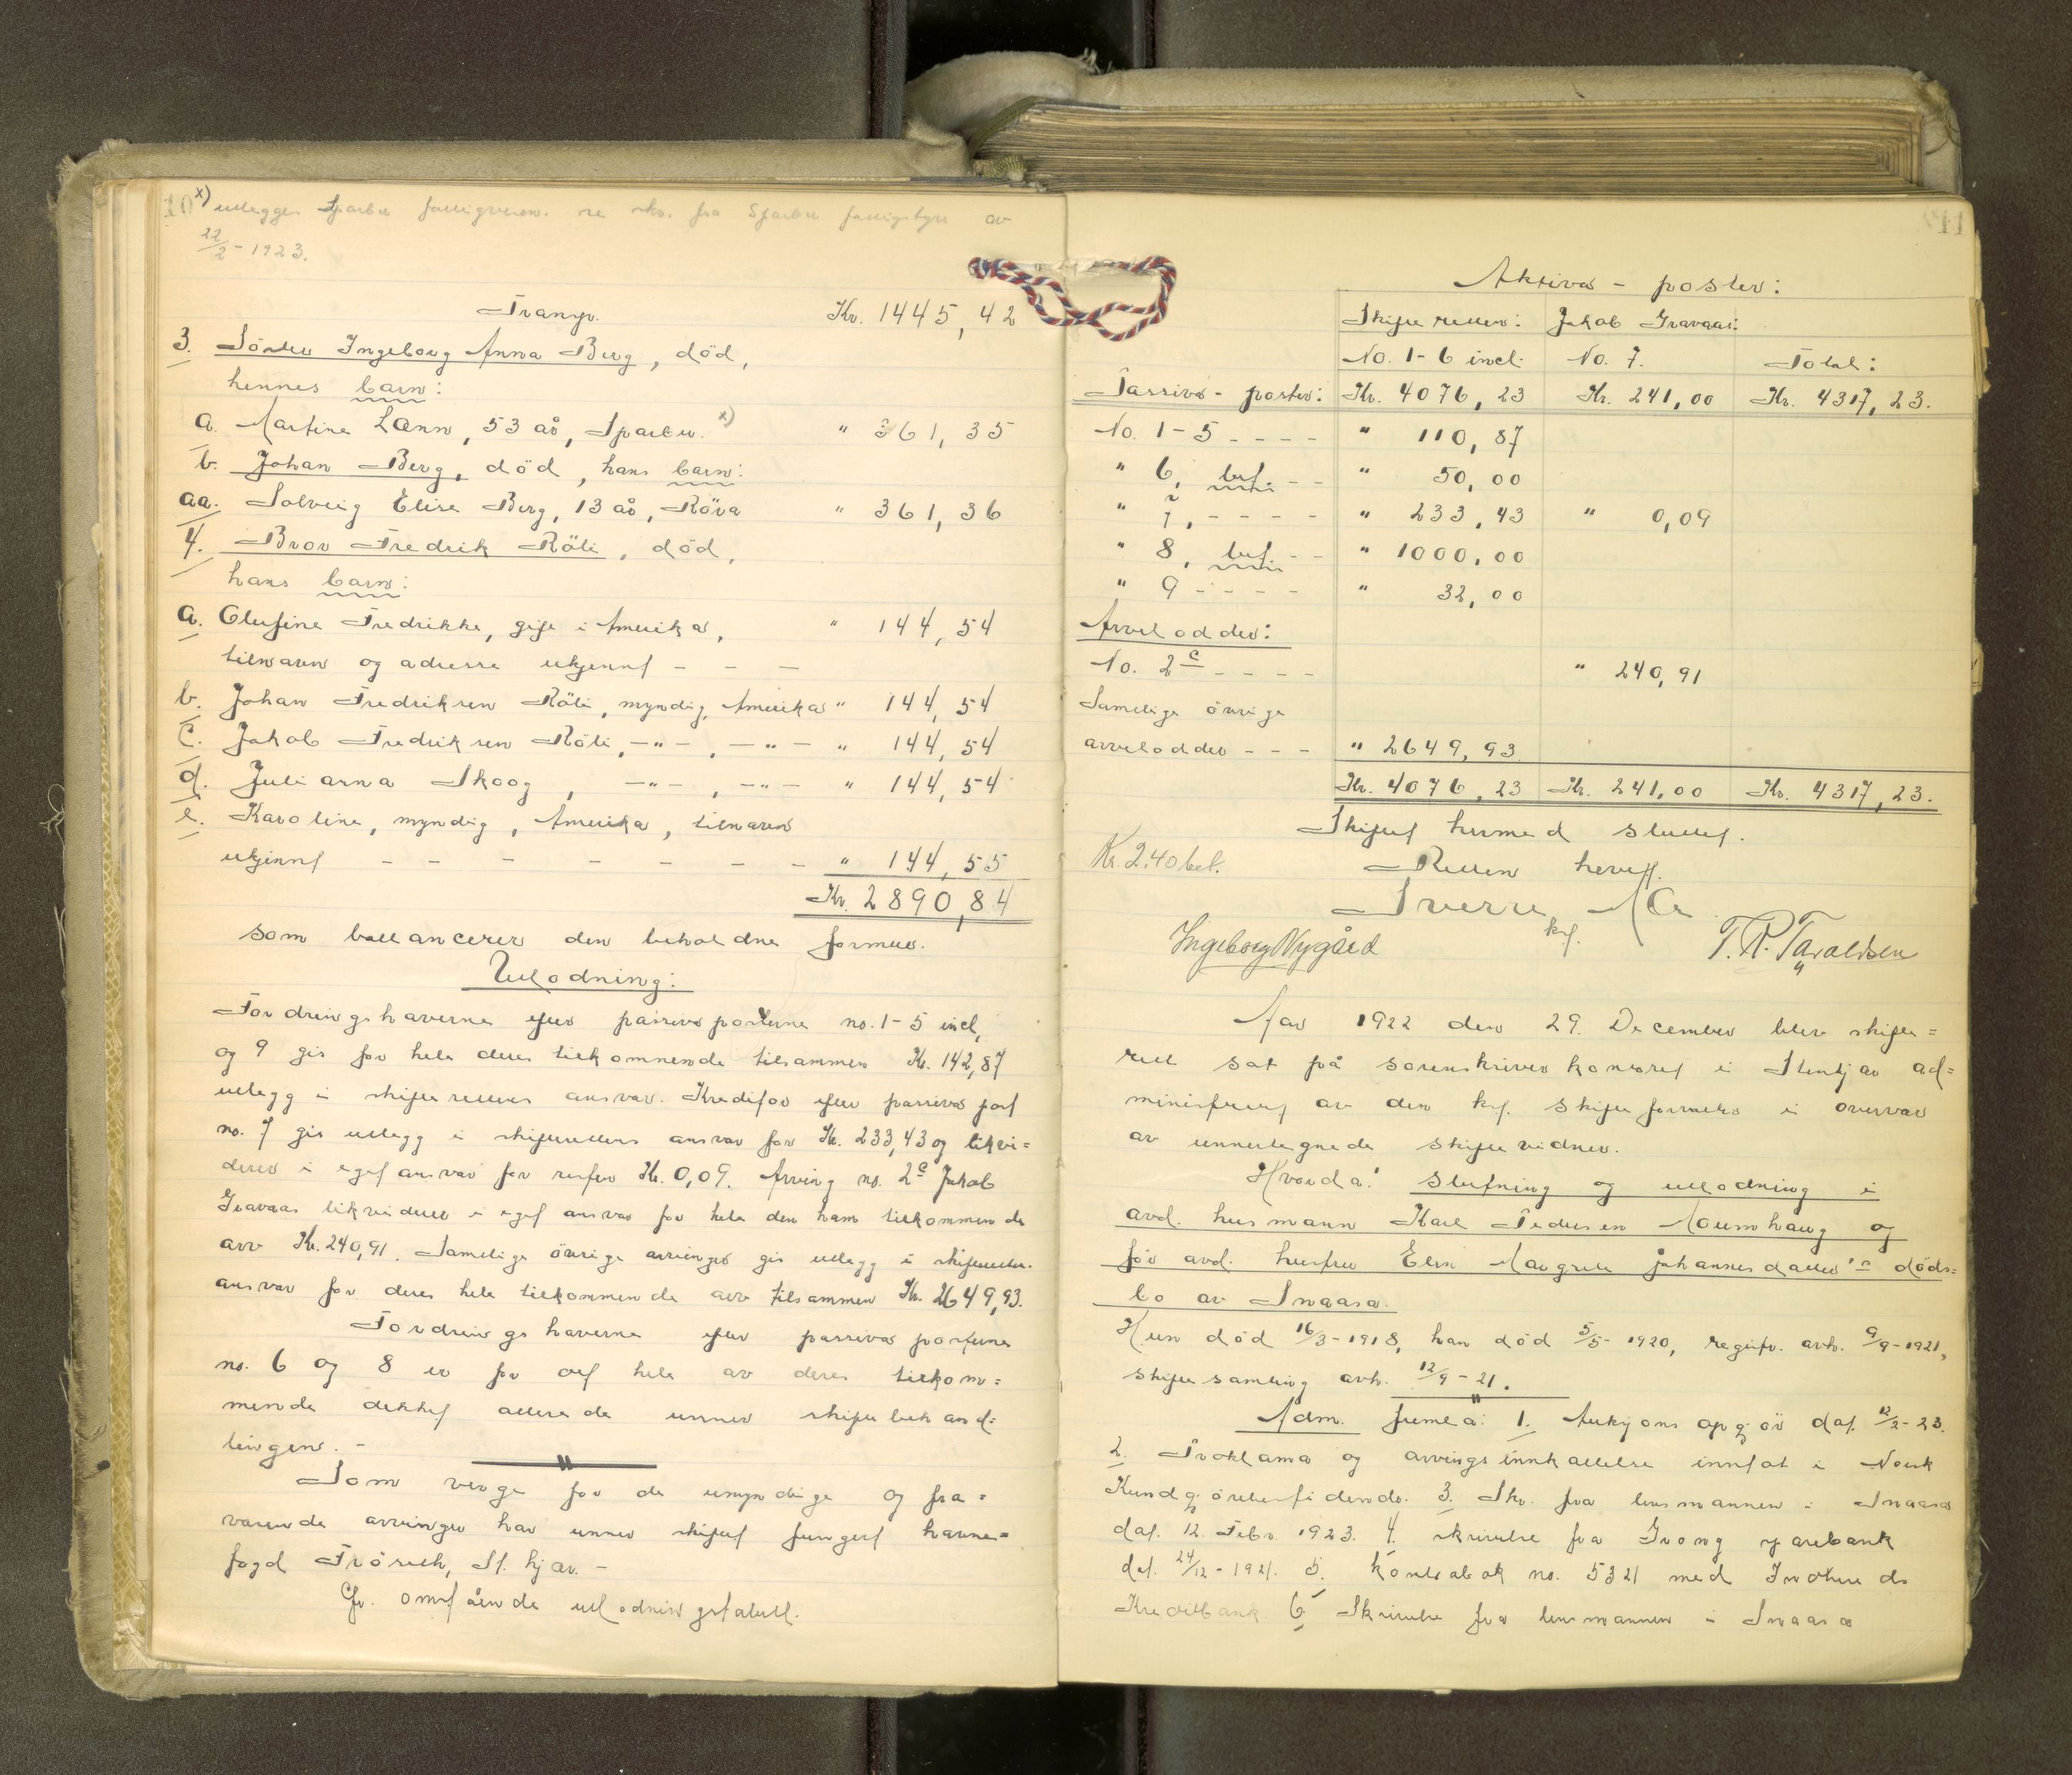 x) utlegges Sparbu fattigvesen. se skr. fra Sparbu fattigstyre av
22/2-1923.
Transp. Kr. 1445,42
3. Söster Ingeborg Anna Berg, död,
hennes barn:
a. Martine Lønn, 53 år, Sparbu. x) " 361,35
b. Johan Berg, död, hans barn:
aa. Solveig Elise Berg, 13 år, Röra " 361,36
4. Bror Fredrik Röli, död,
hans barn:
a. Olufine Fredrikke, gift i Amerika, " 144,54
tilnavn og adresse ukjennt - - -
b. Johan Fredriksen Röli, myndig, Amerika " 144,54
c. Jakob Fredriksen Röli, -"-, -"- " 144,54
d. Julianna Skoog, -"-, -"- " 144,54
e. Karoline, myndig, Amerika, tilnavn
ukjennt - - - - - - " 144,55
Kr. 2890,84
som ballancerer den beholdne formue.
Utlodning:
Fordringshaverne efter passivaposterne no. 1-5 incl,
og 9 gis for hele deres tilkommende tilsammen Kr. 142,87
utlegg i skifterettens ansvar. Kreditor efter passiva post
no. 7 gis utlegg i skifterettens ansvar for Kr. 233,43 og likvi=
derer i eget ansvar for resten Kr. 0,09. Arving no. 2c Jakob
Gravaas likviderer i eget ansvar for hele den ham tilkommende
arv Kr. 240,91. Samtlige övrige arvinger gis utlegg i skifterettens
ansvar for deres hele tilkommende arv tilsammen Kr. 2649,93.
Fordringshaverne efter passiva posterne
no. 6 og 8 er for det hele av deres tilkom=
mende dekket allerede unner skiftebehand=
lingen. -
Som verge for de umyndige og fra=
værende arvinger har unner skiftet fungert havne=
fogd Fröseth, St.hjær. -
Cfr. omstående utlodningstabell.
Aktiva - poster:
Skifteretten: Jakob Gravaas:
No. 1-6 incl. No. 7. Total:
Passiva - poster: Kr. 4076,23 Kr. 241,00 Kr. 4317,23.
No. 1-5 - - - - " 110,87
" 6, bet. - - " 50,00
" 7, - - - - " 233,43 " 0,09
" 8, bet. - - " 1000,00
" 9 - - - - " 32,00
Arvelodder:
No. 2c - - - - " 240,91
Samtlige övrige
arvelodder - - - " 2649,93
Kr. 4076,23 Kr. 241,00 Kr. 4317,23.
Skiftet hermed sluttet.
Kr. 2.40 bet. Retten hevet.
Sverre
kst.
Ingeborg Nygård T. R. Taraldsen
Aar 1922 den 29. December blev skifte=
rett sat på sorenskriverkontoret i Stenkjær ad=
ministrert av den kst. skifteforvalter i overvær
av unnertegnede skiftevidner.
Hvorda: slutning og utlodning i
avd. husmann Karl Pedersen Moumhaug og
för avd. hustru Elen Margrete Johannesdatter's döds=
bo av Snaasa.
Hun död 16/3-1918, han död 5/5-1920, registr. avh. 9/9-1921,
skiftesamling avh. 12/9-21.
Adm. fremla: 1. Auksjonsopgjör dat. 12/2-23.
2. Proklama og arvingsinnkallelse inntat i Norsk
Kundgjörelsestidende. 3. Skr. fra lensmannen i Snaasa
dat. 12. Febr. 1923. 4. skrivelse fra Grong sparebank
dat. 24/12-1921. 5. kontrabok no. 5321 med Indherreds
Kreditbank 6. Skrivelse fra lensmannen i Snaasa